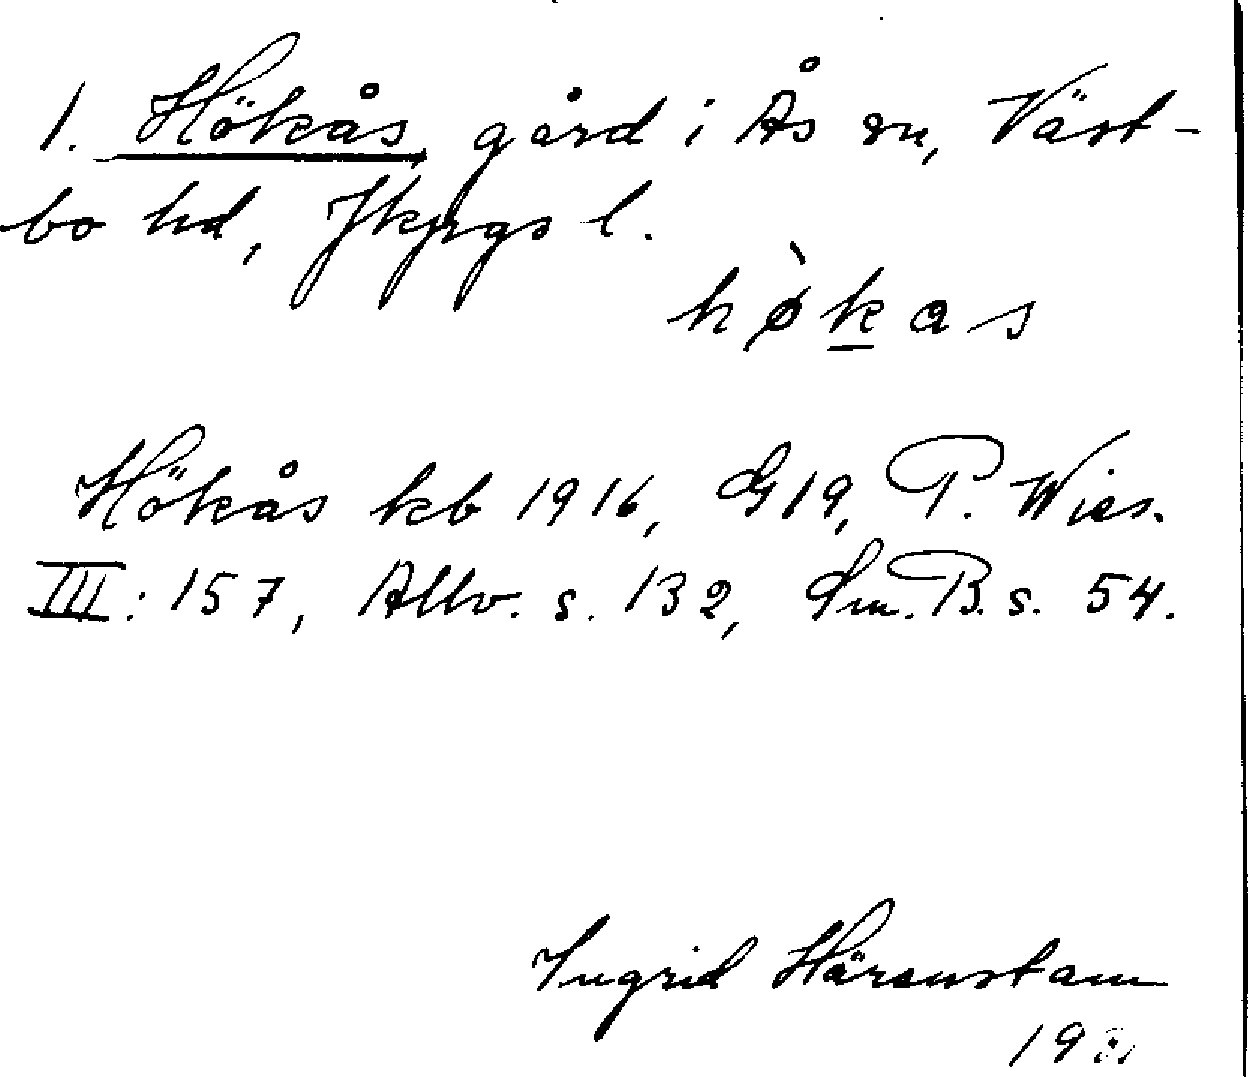 1. Hökås, gård i Ås sn, Väst-
bo hd, Jkpgs l.
hø̀kas
Hökås kb 1916, G19, P. Wies.
III: 157, Allv. s. 132, Sm. B. s. 54.
Ingrid Härenstam